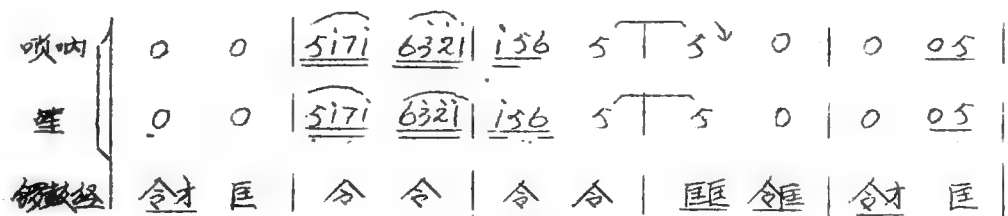 唢呐 0 0 | 5i7i 632i | i56 5 | 5 0 | 0 05 |
笙 0 0 | 5i7i 632i | i56 5 | 5 0 | 0 05 |
锣鼓经 令才 匡 | 令 令 | 令 令 | 匡匡 令匡 | 令才 匡 |